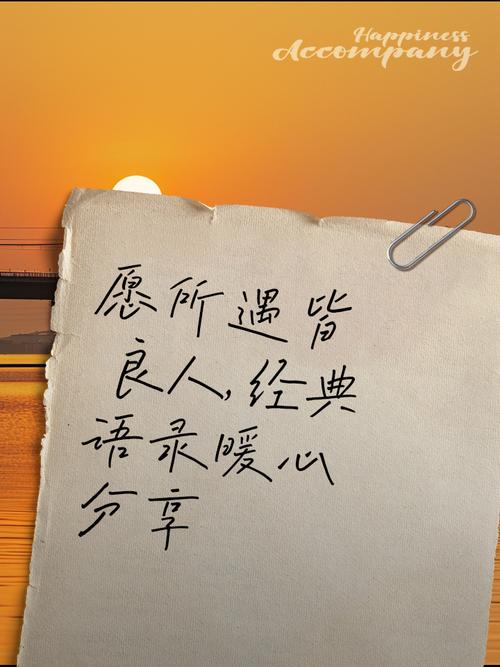 Happiness
Accompany
愿所遇皆
良人,经典
语录暖心
分享